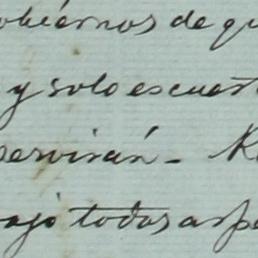 obiernos de qu
y solo es cuest
servirán - R
bajo todos aspe